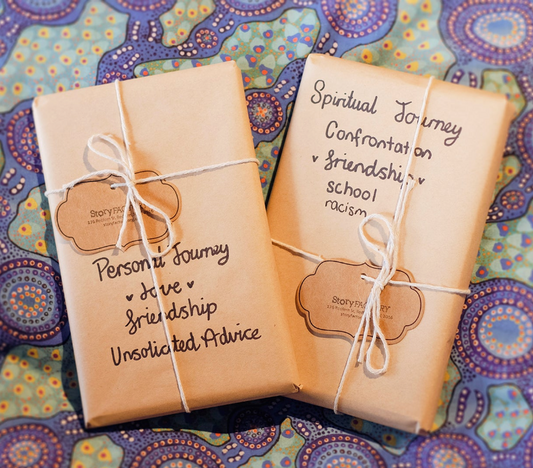 Story FACTORY
Personal Journey
♥ love ♥
friendship
Unsolicited Advice
Spiritual Journey
Confrontation
♥ friendship ♥
school
racism
Story FACTORY